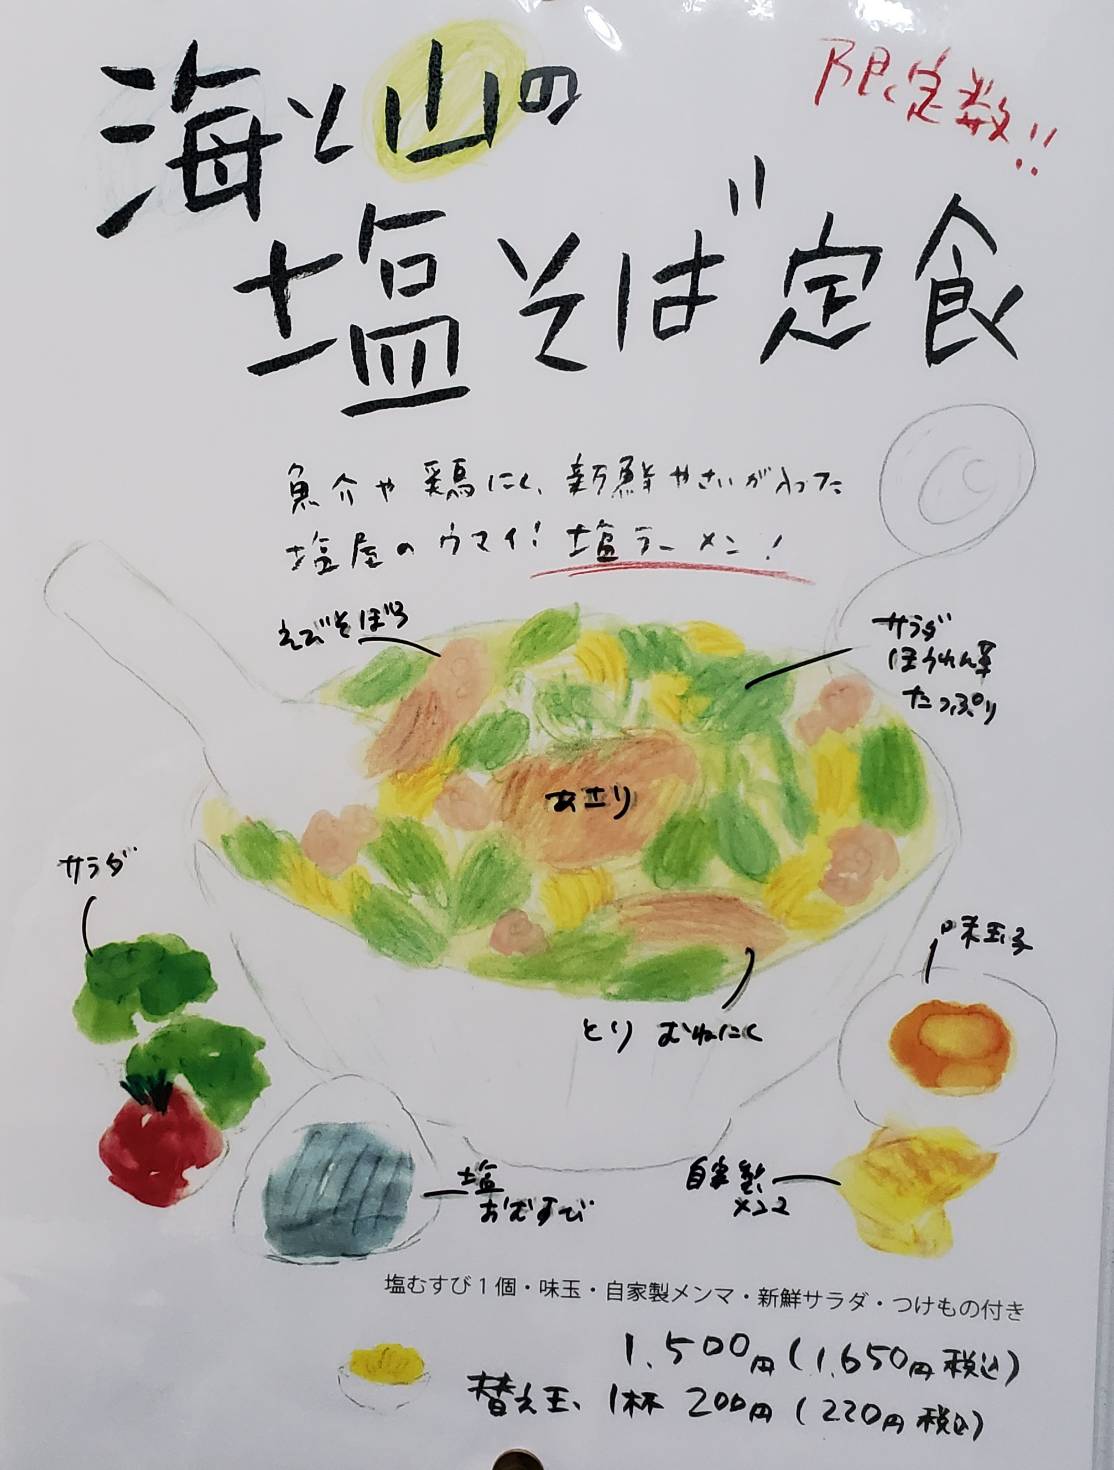 限定数!!
海と山の
塩そば定食
魚介や鶏にく、新鮮やさいが入った
塩屋のウマイ!塩ラーメン!
えびそぼろ
サラダ
ほうれん草
たっぷり
あさり
サラダ
味玉子
とり むねにく
塩
おむすび
自家製
メンマ
塩むすび1個・味玉・自家製メンマ・新鮮サラダ・つけもの付き
1,500円(1,650円税込)
替え玉、1杯 200円(220円税込)